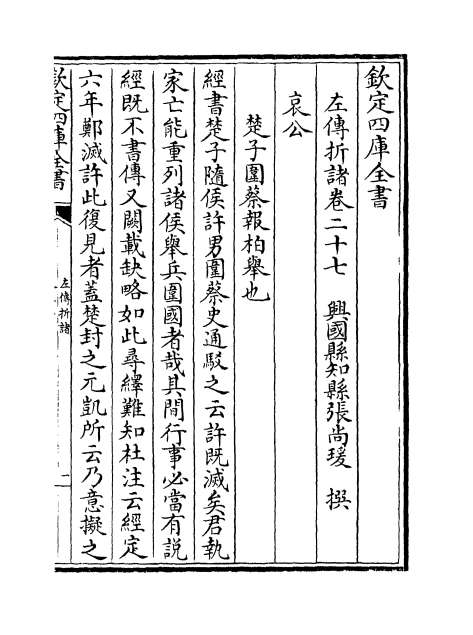 欽定四庫全書
左傳折諸卷二十七 興國縣知縣張尚瑗 撰
哀公
楚子圍蔡報柏舉也
經書楚子隨侯許男圍蔡史通駁之云許既滅矣君執
家亡能重列諸侯舉兵圍國者哉其間行事必當有說
經既不書傳又闕載缺略如此尋繹難知杜注云經定
六年鄭滅許此復見者蓋楚封之元凱所云乃意擬之
欽定四庫全書
左傳折諸